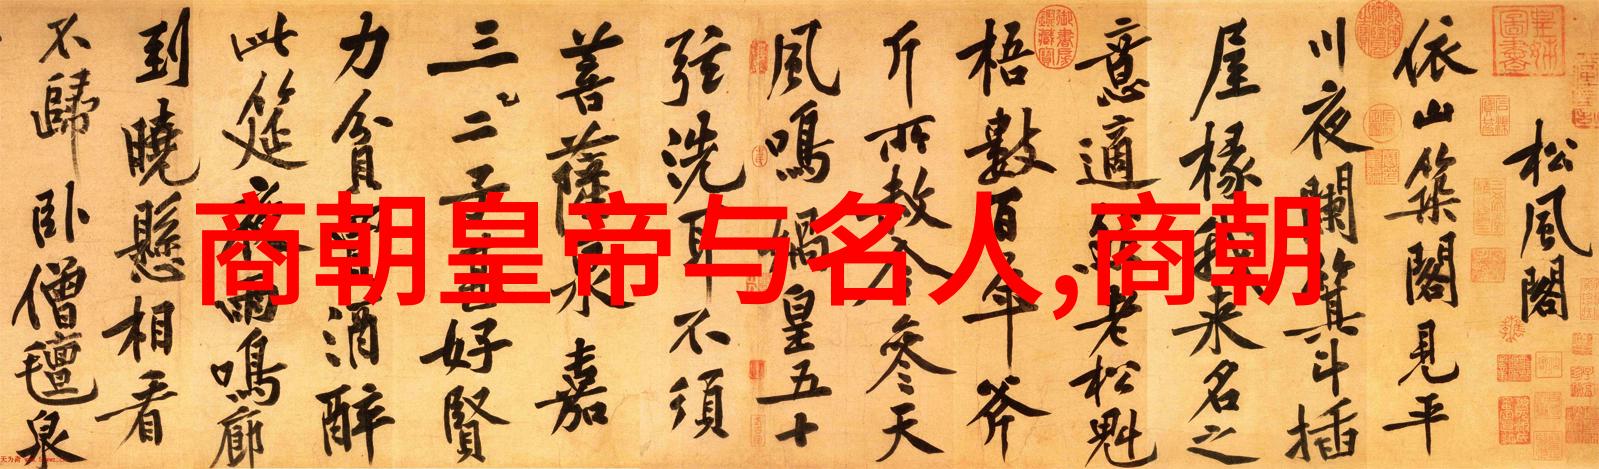 松風閣
依山築閣見平
川夜闌箕斗插
屋椽我来名之
意適然老松魁
梧數百年斧
斤所赦今參天
風鳴媧皇五十
弦洗耳不須
菩薩泉嘉
三二子甚好賢
力貧買酒醉
此筵夜雨鳴廊
到曉懸相看
不歸卧僧氊泉
商朝皇帝与名人,商朝
皇姊圖書
御書房鑑藏寶